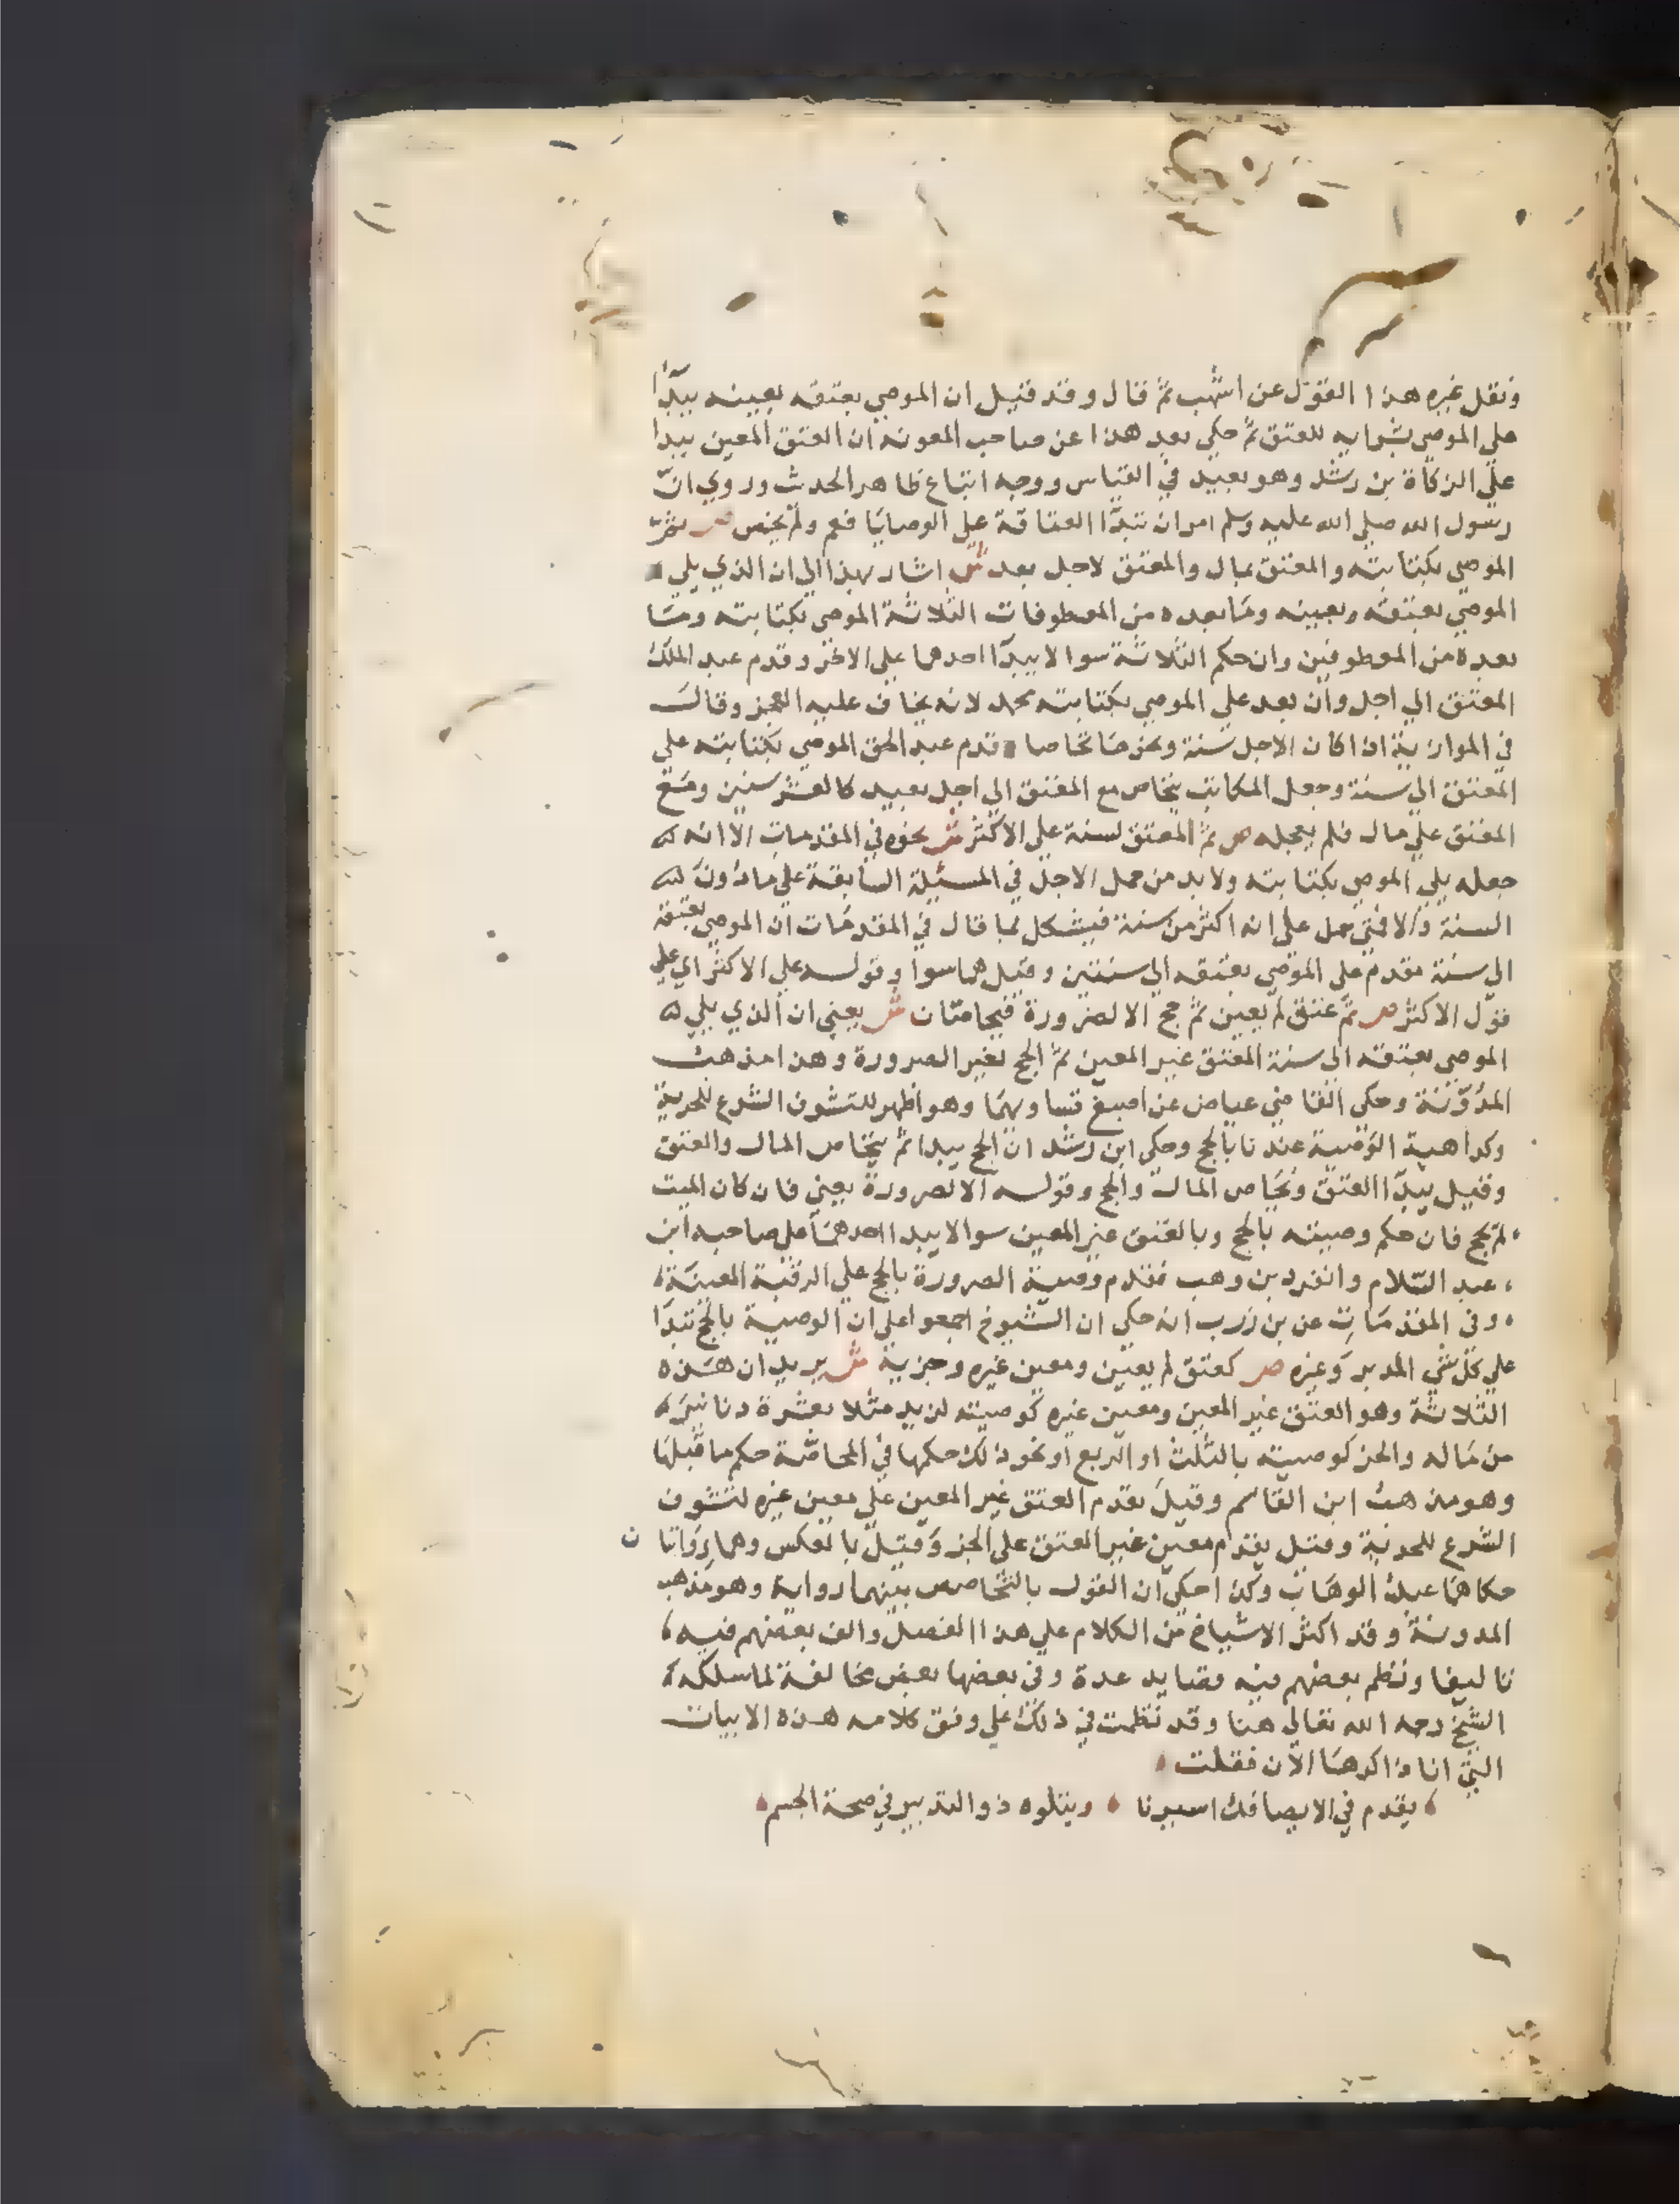 ونقل غيره هذا القول عن اشهب ثم قال وقد قيل ان الموصي بعتقه بعينه يبدا
علي الموصي بشرايه للعتق ثم حكي بعد هذا عن صاحب المعونه ان العتق المعين يبدا
علي الزكاة بن رشد وهو بعيد في القياس ووجه اتباع ظاهر الحدث وروي ان
رسول الله صلي الله عليه وسلم امر ان تبدا العتاقة علي الوصايا فعم ولم يخص ص ثم
الموصي بكتابته والمعتق بمال والمعتق لاجل بعد ش اشار بهذا الي ان الذي يلي
الموصي بعتقه وبعينه وما بعده من المعطوفات الثلاثة الموصي بكتابته وما
بعده من المعطوفين وان حكم الثلاثة سوا لا يبدا احدهما علي الاخر وقدم عبد الملك
المعتق الي اجل وان بعد علي الموصي بكتابته لانه يخاف عليه العجز وقال
في الموازية اذا كان الاجل سنة ونحوها تحاصا وقدم عبد الحق الموصي بكتابته علي
المعتق الي سنة وجعل المكاتب يتحاص مع المعتق الي اجل بعيد كالعشر سنين ومع
المعتق علي مال فلم يعجله ص ثم المعتق لسنة علي الاكثر ش نحوه في المقدمات الا انه
جعله يلي الموصي بكتابته ولا بد من حمل الاجل في المسئلة السابقة علي ما دون
السنة والا فمتي حمل علي انه اكثر من سنة فيشكل بما قال في المقدمات ان الموصي بعتقه
الي سنة مقدم علي الموصي بعتقه الي سنتين وقيل هما سوا وقوله علي الاكثر اي علي
قول الاكثر ص ثم عتق لم يعين ثم حج الا لصرورة فيتحاصان ش يعني ان الذي يلي
الموصي بعتقه الي سنة المعتق غير المعين ثم الحج لغير الصرورة وهذا مذهب
المدونة وحكي القاضي عياض عن اصبغ تساويهما وهو اظهر لتشوف الشرع للحرية
وكراهية الوصية عندنا بالحج وحكي ابن رشد ان الحج يبدا ثم يتحاص المال والعتق
وقيل يبدا العتق ويتحاص المال والحج وقوله الا لصرورة يعني فان كان الميت
لم يحج فان حكم وصيته بالحج وبالعتق غير المعين سوا لا يبدا احدهما علي صاحبه ابن
عبد السلام وانفرد بن وهب فقدم وصية الصرورة بالحج علي الرقبة المعينة
وفي المقدمات عن بن زرب انه حكي ان الشيوخ اجمعوا علي ان الوصية بالحج تبدا
علي كل شي المدبر وغيره ص كعتق لم يعين ومعين غيره وجزيه ش يريد ان هذه
الثلاثة وهو العتق غير المعين ومعين غيره كوصيته لزيد مثلا بعشرة دنانير
من ماله والجز كوصيته بالثلث او الربع او نحو ذلك حكمها في المحاصة حكم ما قبلها
وهو مذهب ابن القاسم وقيل يقدم العتق غير المعين علي معين غيره لتشوف
الشرع للحرية وقيل يقدم معين غير العتق علي الجز وقيل بالعكس وهما روايتا ن
حكاهما عبد الوهاب وكذا حكي ان القول بالتحاصص بينهما رواية وهو مذهب
المدونة وقد اكثر الاشياخ من الكلام علي هذا الفصل والف بعضهم فيه
تاليفا ونظم بعضهم فيه قصايد عدة وفي بعضها بعض مخالفة لما سلكه
الشيخ رحمه الله تعالي هنا وقد نظمت في ذلك علي وفق كلامه هذه الابيات
التي انا ذاكرها الان فقلت
يقدم في الايصا فك اسيرنا ويتلوه ذو التدبير في صحة الجسم